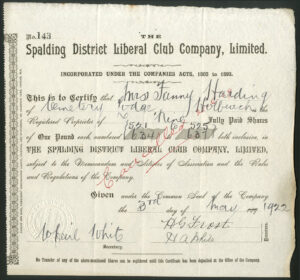 No. 143
THE
Spalding District Liberal Club Company, Limited.
INCORPORATED UNDER THE COMPANIES ACTS, 1862 to 1893.
This is to Certify that Mrs Fanny Harding
of Cemetery Lodge Holbeach the
Registered Proprietor of Nine Fully Paid Shares
521 525
of One Pound each numbered 634 637 both inclusive, in
THE SPALDING DISTRICT LIBERAL CLUB COMPANY, LIMITED,
subject to the Memorandum and Articles of Association and the Rules
and Regulations of the Company.
Given under the Common Seal of the Company
the 3rd day of May 1922
White
A G Frost
Secretary.
No Transfer of any of the above-mentioned Shares can be registered until this Certificate has been deposited at the Office of the Company.